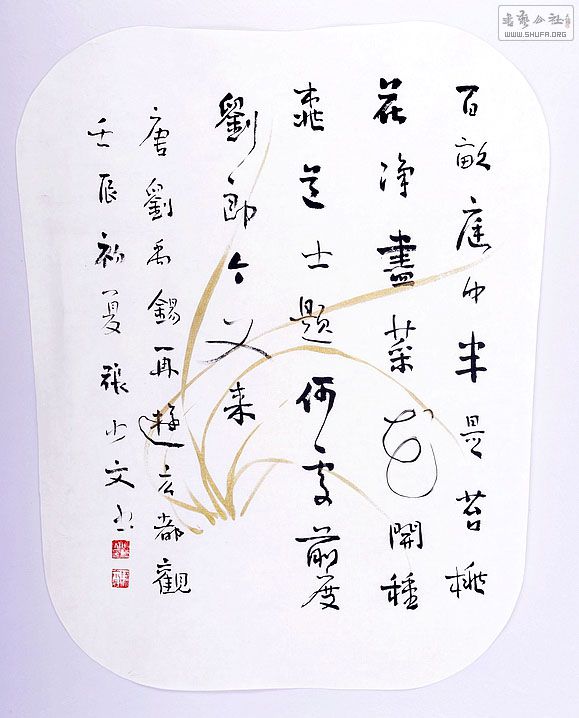 書藝公社
WWW.SHUFA.ORG
百畝庭中半是苔桃
花淨盡菜花開種
桃道士題何處前度
劉郎今又来
唐劉禹錫再遊玄都觀
壬辰初夏張少文书